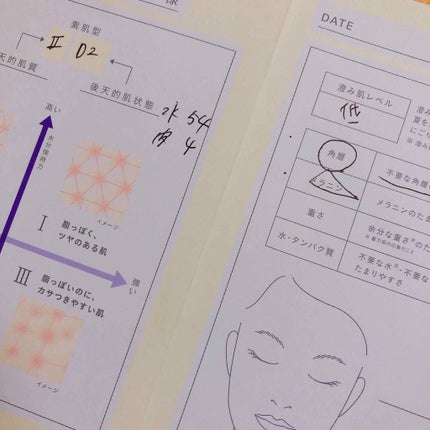 様
素肌型
Ⅱ D2
天的肌質
後天的肌状態
水 54
肉 4
高い
水分保持力
イメージ
Ⅰ 脂っぽく、
ツヤのある肌
強い
Ⅲ 脂っぽいのに、
カサつきやすい肌
イメージ
DATE
澄み肌レベル
低
角層
不要な角層
メラニン
メラニンのたま
重さ
余分な重さ
水・タンパク質
不要な水・不要な
たまりやすさ